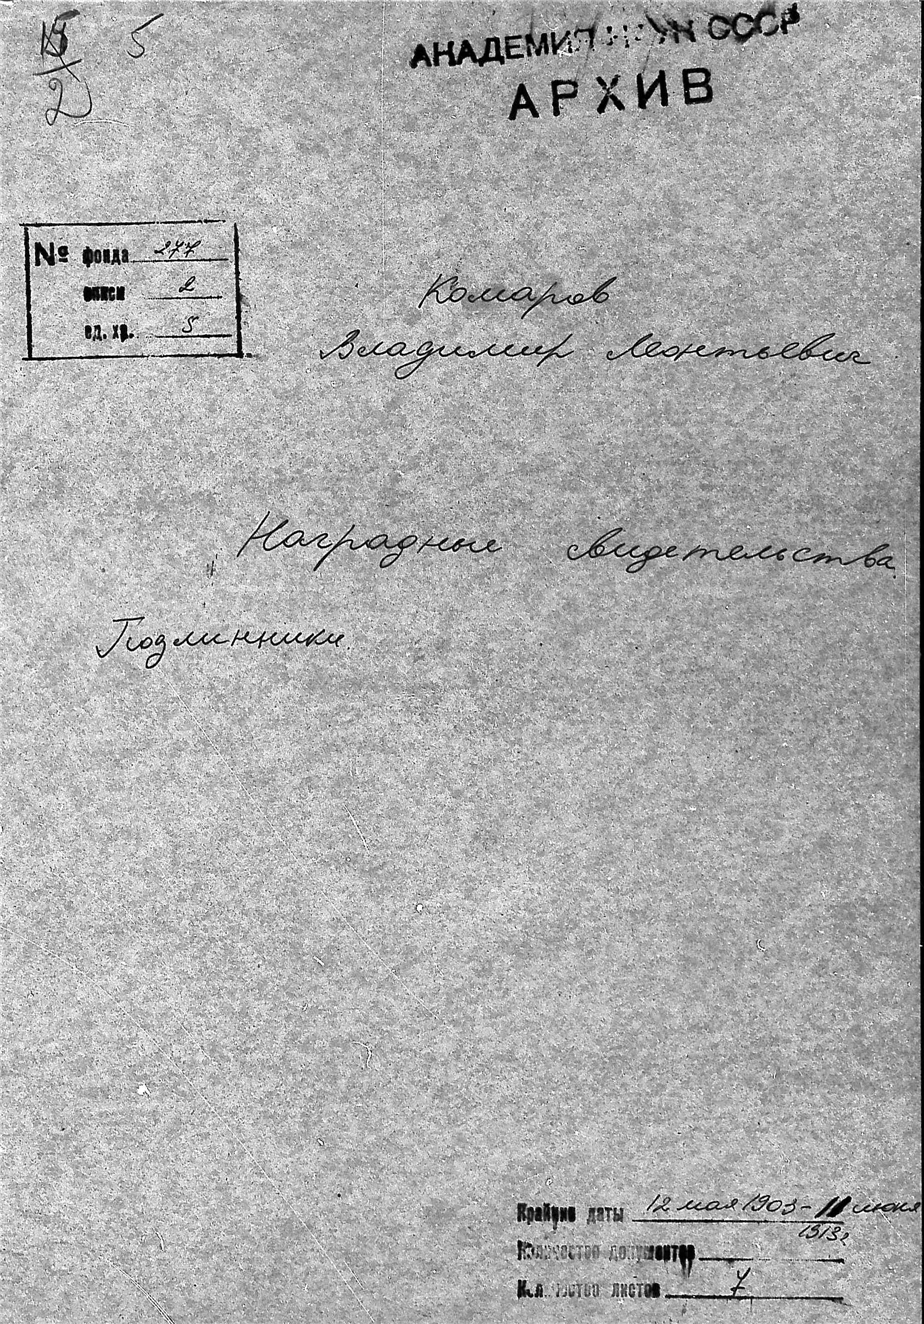 15
2
5
АКАДЕМИЯ НАУК СССР
АРХИВ
№ фонда 277
описи 2
ед. хр. 5
Комаров
Владимир Леонтьевич
Наградные свидетельства.
Подлинники.
Крайние даты 12 мая 1903 - 11 июня
1913г
Количество документов
Количество листов 7